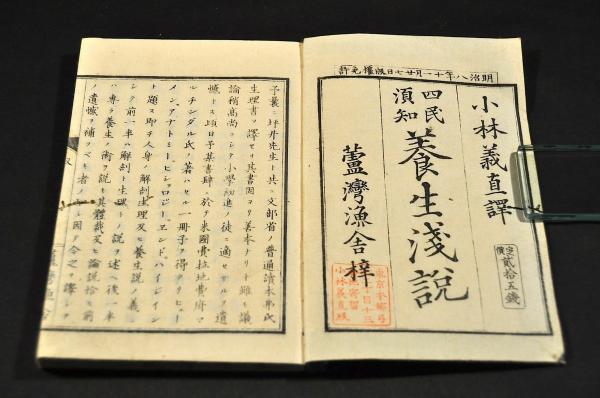 明治八年十一月廿七日版權免許
小林義直譯
定價 貳拾五錢
四民須知 養生淺說
蘆灣漁舍梓
小林義直
予曩ニ坪井先生ト共ニ文部省ノ普通讀本弗氏
生理書ヲ譯セリ其書固ヨリ善本ナリト雖モ議
論稍高尚ニシテ小學幼進ノ徒ニ適セサルヲ遺
憾トス頃日予某書肆ニ於テ米國費拉地費府マ
ルチンダル氏ノ著ハセル一冊子ヲ得タリヒユー
メン、アナトミーヒシヲロジー、エンド、ハイジイン
ト題ス即チ人身ノ解剖生理及ヒ養生說ノ義ニ
シテ前一半ハ解剖ト生理トノ說ヲ述ヘ後一半
ハ專ラ養生ノ術ヲ說キ其體裁及ヒ論說拾モ前
ノ遺憾ヲ補フヘキ者ノ如シ因テ今之ヲ譯シテ